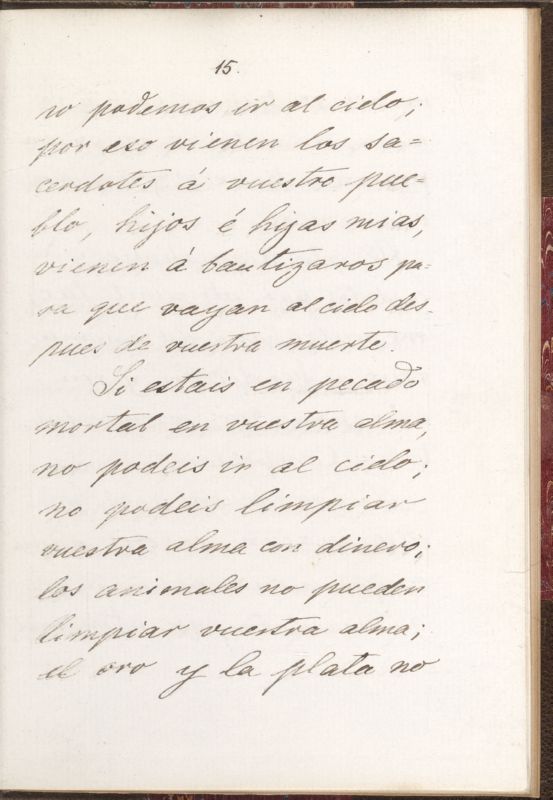 15.
no podemos ir al cielo;
por eso vienen los sa=
cerdotes á vuestro pue=
blo, hijos é hijas mias,
vienen á bautizaros pa-
ra que vayan al cielo des-
pues de vuestra muerte.
Si estais en pecado
mortal en vuestra alma,
no podeis ir al cielo;
no podeis limpiar
vuestra alma con dinero;
los animales no pueden
limpiar vuestra alma;
el oro y la plata no